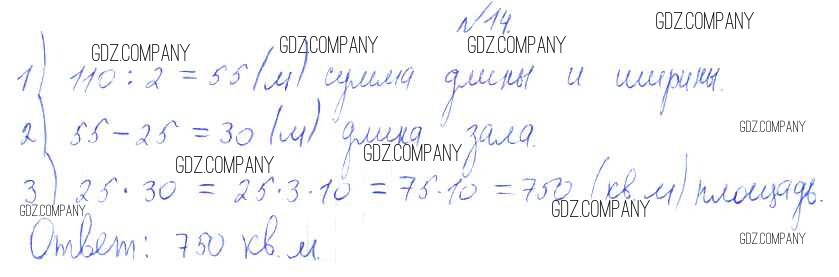 №14.
1) 110 : 2 = 55 (м) сумма длины и ширины.
2) 55 - 25 = 30 (м) длина зала.
3) 25 · 30 = 25 · 3 · 10 = 75 · 10 = 750 (кв. м) площадь.
Ответ: 750 кв. м.
GDZ.COMPANY
GDZ.COMPANY
GDZ.COMPANY
GDZ.COMPANY
GDZ.COMPANY
GDZ.COMPANY
GDZ.COMPANY
GDZ.COMPANY
GDZ.COMPANY
GDZ.COMPANY